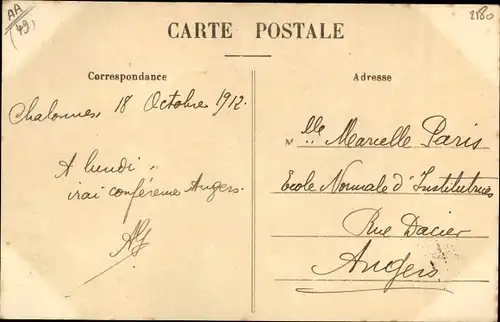 AA
(49)
2180
CARTE POSTALE
Correspondance
Chalonnes 18 Octobre 1912.
A lundi
irai conférence Angers.
AG
Adresse
Mlle Marcelle Paris
Ecole Normale d'Institutrices
Rue Dacier
Angers